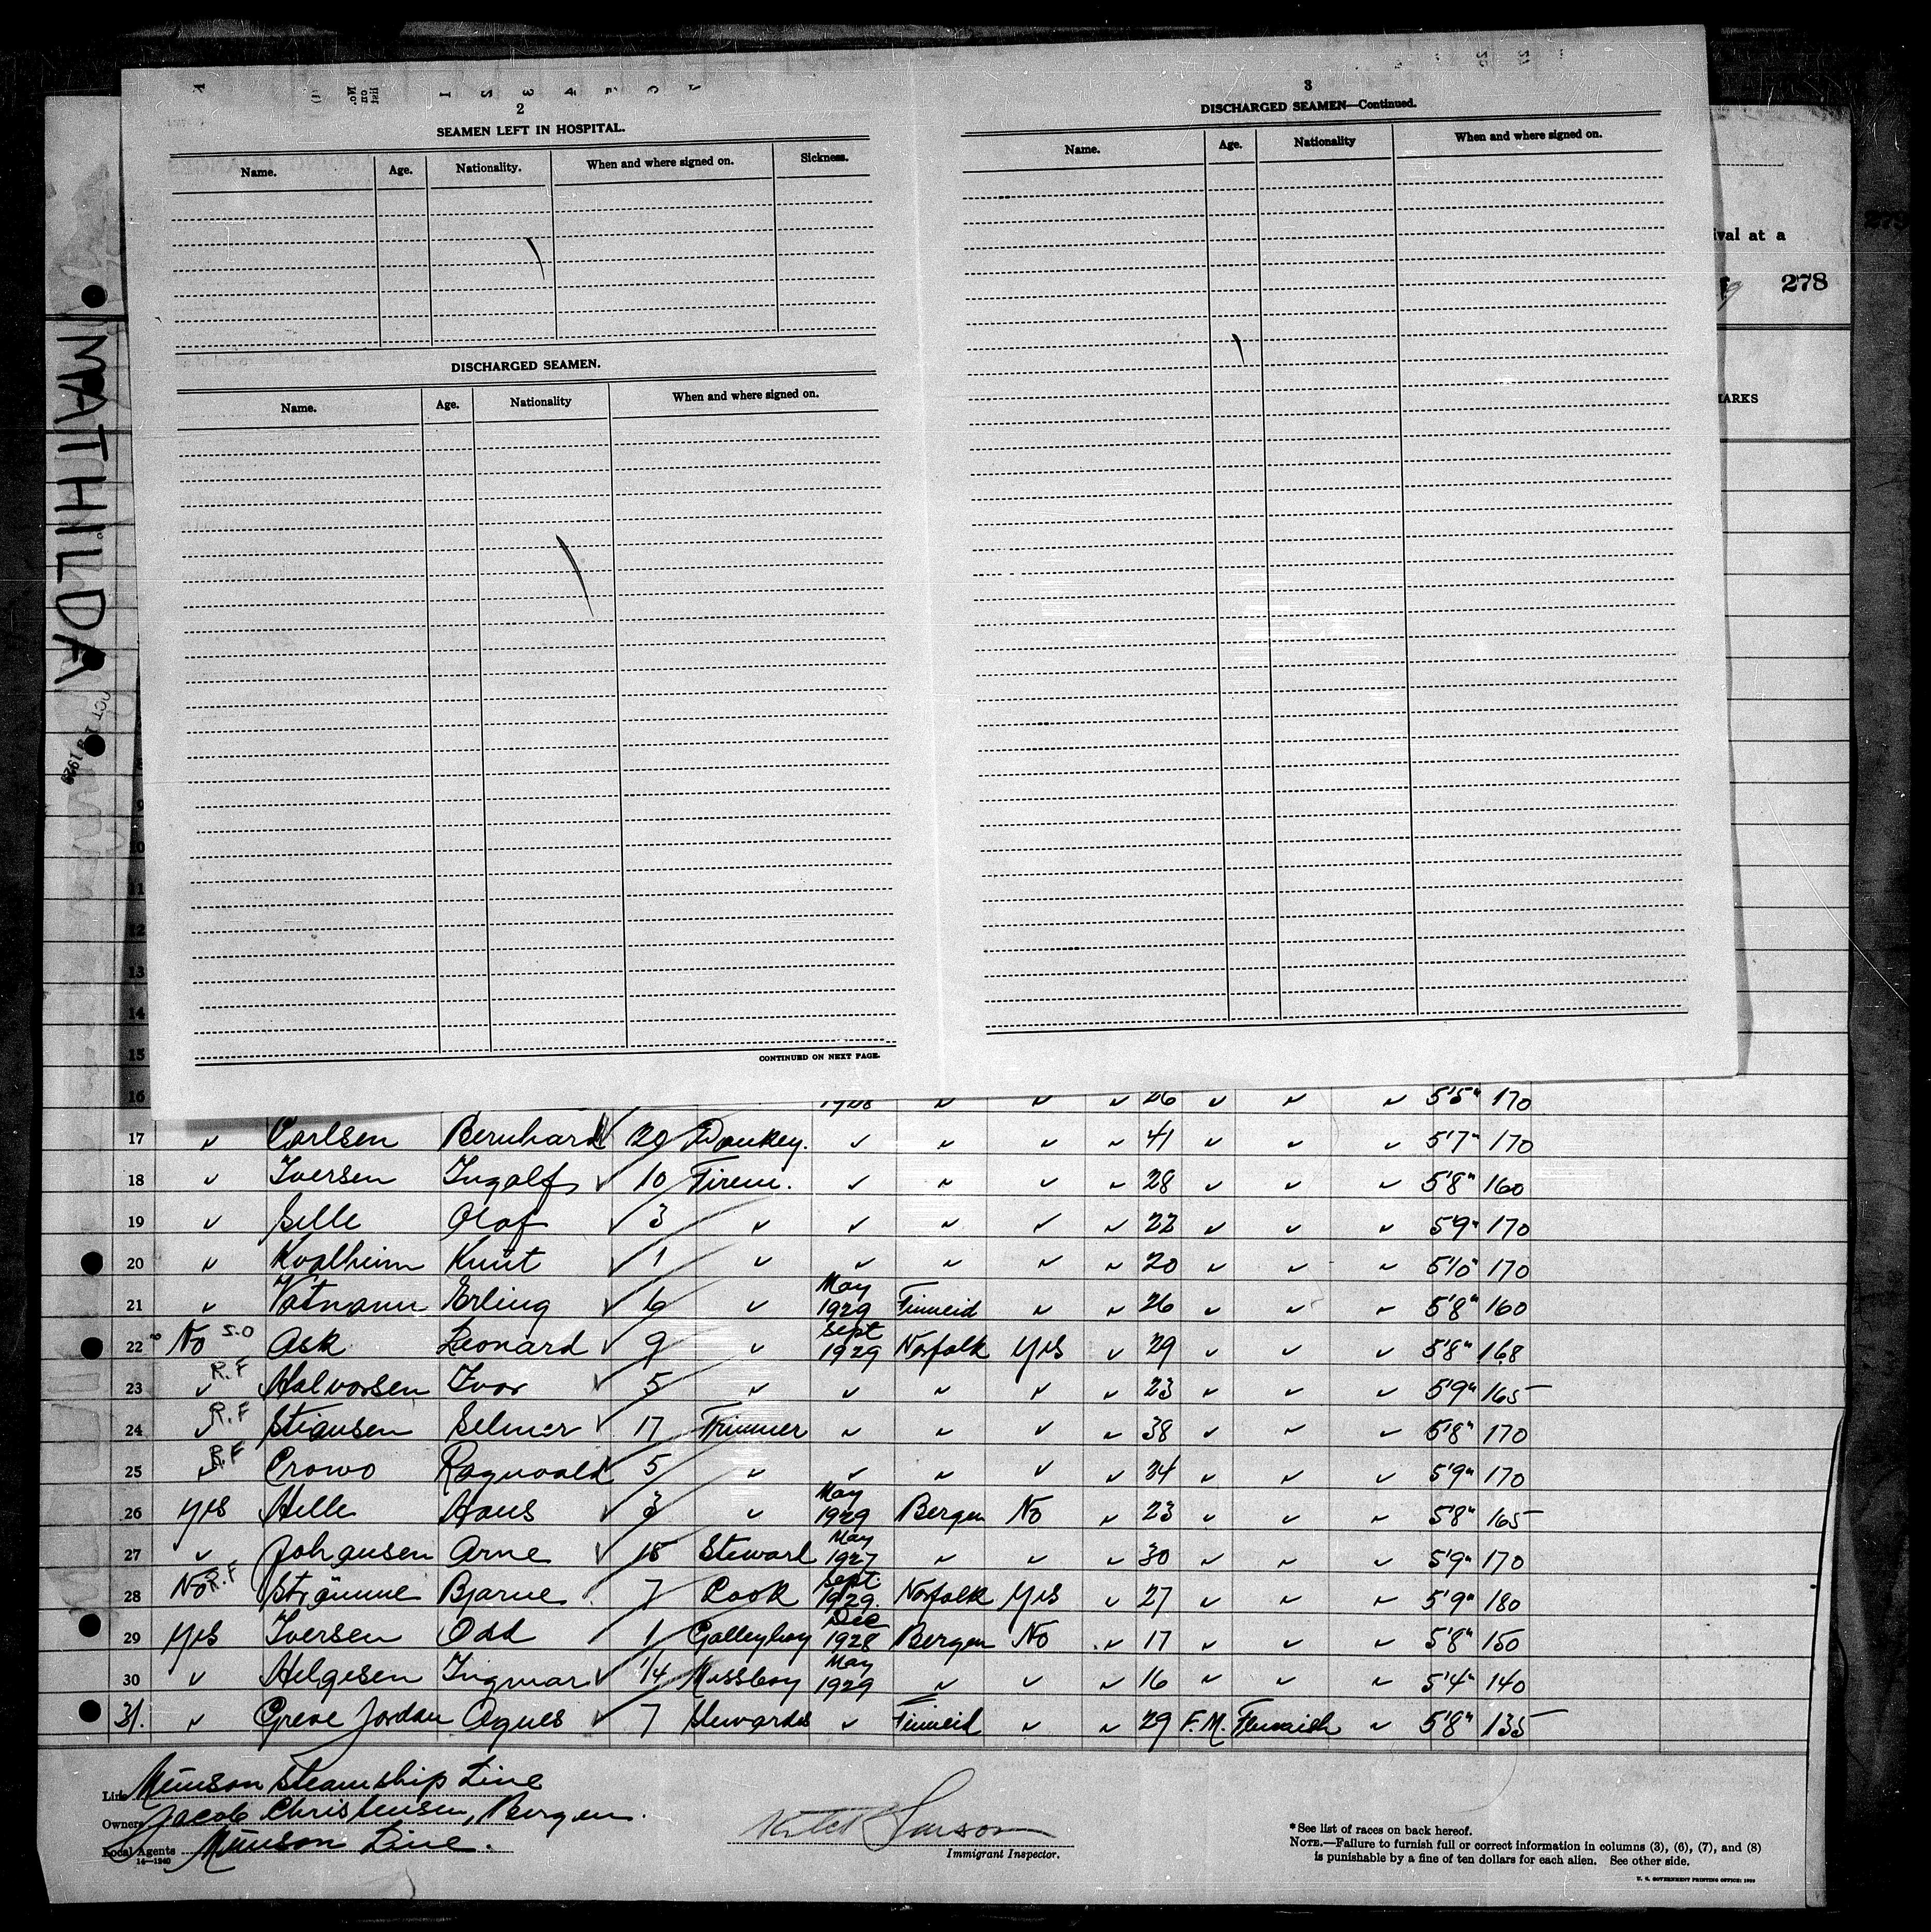 2
SEAMEN LEFT IN HOSPITAL.
Name. Age. Nationality. When and where signed on. Sickness.
DISCHARGED SEAMEN.
Name. Age. Nationality When and where signed on.
CONTINUED ON NEXT PAGE.
3
DISCHARGED SEAMEN—Continued.
Name. Age. Nationality When and where signed on.
ival at a
278
MARKS
MATHILDA
OCT 19 1929
11
12
13
14
15
16 1928 26 5'5" 170
17 ✓ Carlsen Bernhard 20 Donkey. ✓ ✓ ✓ ✓ 41 ✓ ✓ ✓ 5'7" 170
18 ✓ Iversen Ingolf ✓ 10 Firem. ✓ ✓ ✓ ✓ 28 ✓ ✓ ✓ 5'8" 160
19 ✓ Olaf ✓ 3 ✓ ✓ ✓ ✓ ✓ 22 ✓ ✓ ✓ 5'9" 170
20 ✓ Kvalheim Knut ✓ 1 ✓ ✓ ✓ ✓ ✓ 20 ✓ ✓ ✓ 5'10" 170
21 ✓ Vatnann Erling ✓ 6 ✓ May 1929 Finneid ✓ ✓ 26 ✓ ✓ ✓ 5'8" 160
22 No S.O Ask Leonard ✓ 9 ✓ Sept 1929 Norfolk Yes ✓ 29 ✓ ✓ ✓ 5'8" 168
23 ✓ R.F Halvorsen Ivor ✓ 5 ✓ ✓ ✓ ✓ ✓ 23 ✓ ✓ ✓ 5'9" 165
24 ✓ R.F Stiansen Selmer ✓ 17 Trimmer ✓ ✓ ✓ ✓ 38 ✓ ✓ ✓ 5'8" 170
25 ✓ R.F Crowo Ragnvald 5 ✓ ✓ ✓ ✓ ✓ 34 ✓ ✓ ✓ 5'9" 170
26 Yes Hille Hans ✓ 3 ✓ May 1929 Bergen No ✓ 23 ✓ ✓ ✓ 5'8" 165
27 ✓ Johansen Arne ✓ 15 Steward May 1927 ✓ ✓ ✓ 30 ✓ ✓ ✓ 5'9" 170
28 No R.F Strømme Bjarne 7 Cook Sept. 1929. Norfolk Yes ✓ 27 ✓ ✓ ✓ 5'9" 180
29 Yes Iversen Odd 1 Galleyboy Dec 1928 Bergen No ✓ 17 ✓ ✓ ✓ 5'8" 150
30 ✓ Helgesen Ingmar ✓ 1/4 Messboy May 1929 ✓ ✓ ✓ 16 ✓ ✓ ✓ 5'4" 140
31. ✓ Greve Jordan Agnes ✓ 7 Stewardes ✓ Finneid ✓ ✓ 29 F.M. ✓ 5'8" 135
Line Munson Steamship Line
Owners Jacob Christensen, Bergen.
Local Agents Munson Line.
14—1240
Immigrant Inspector.
*See list of races on back hereof.
NOTE.—Failure to furnish full or correct information in columns (3), (6), (7), and (8)
is punishable by a fine of ten dollars for each alien. See other side.
U. S. GOVERNMENT PRINTING OFFICE: 1929